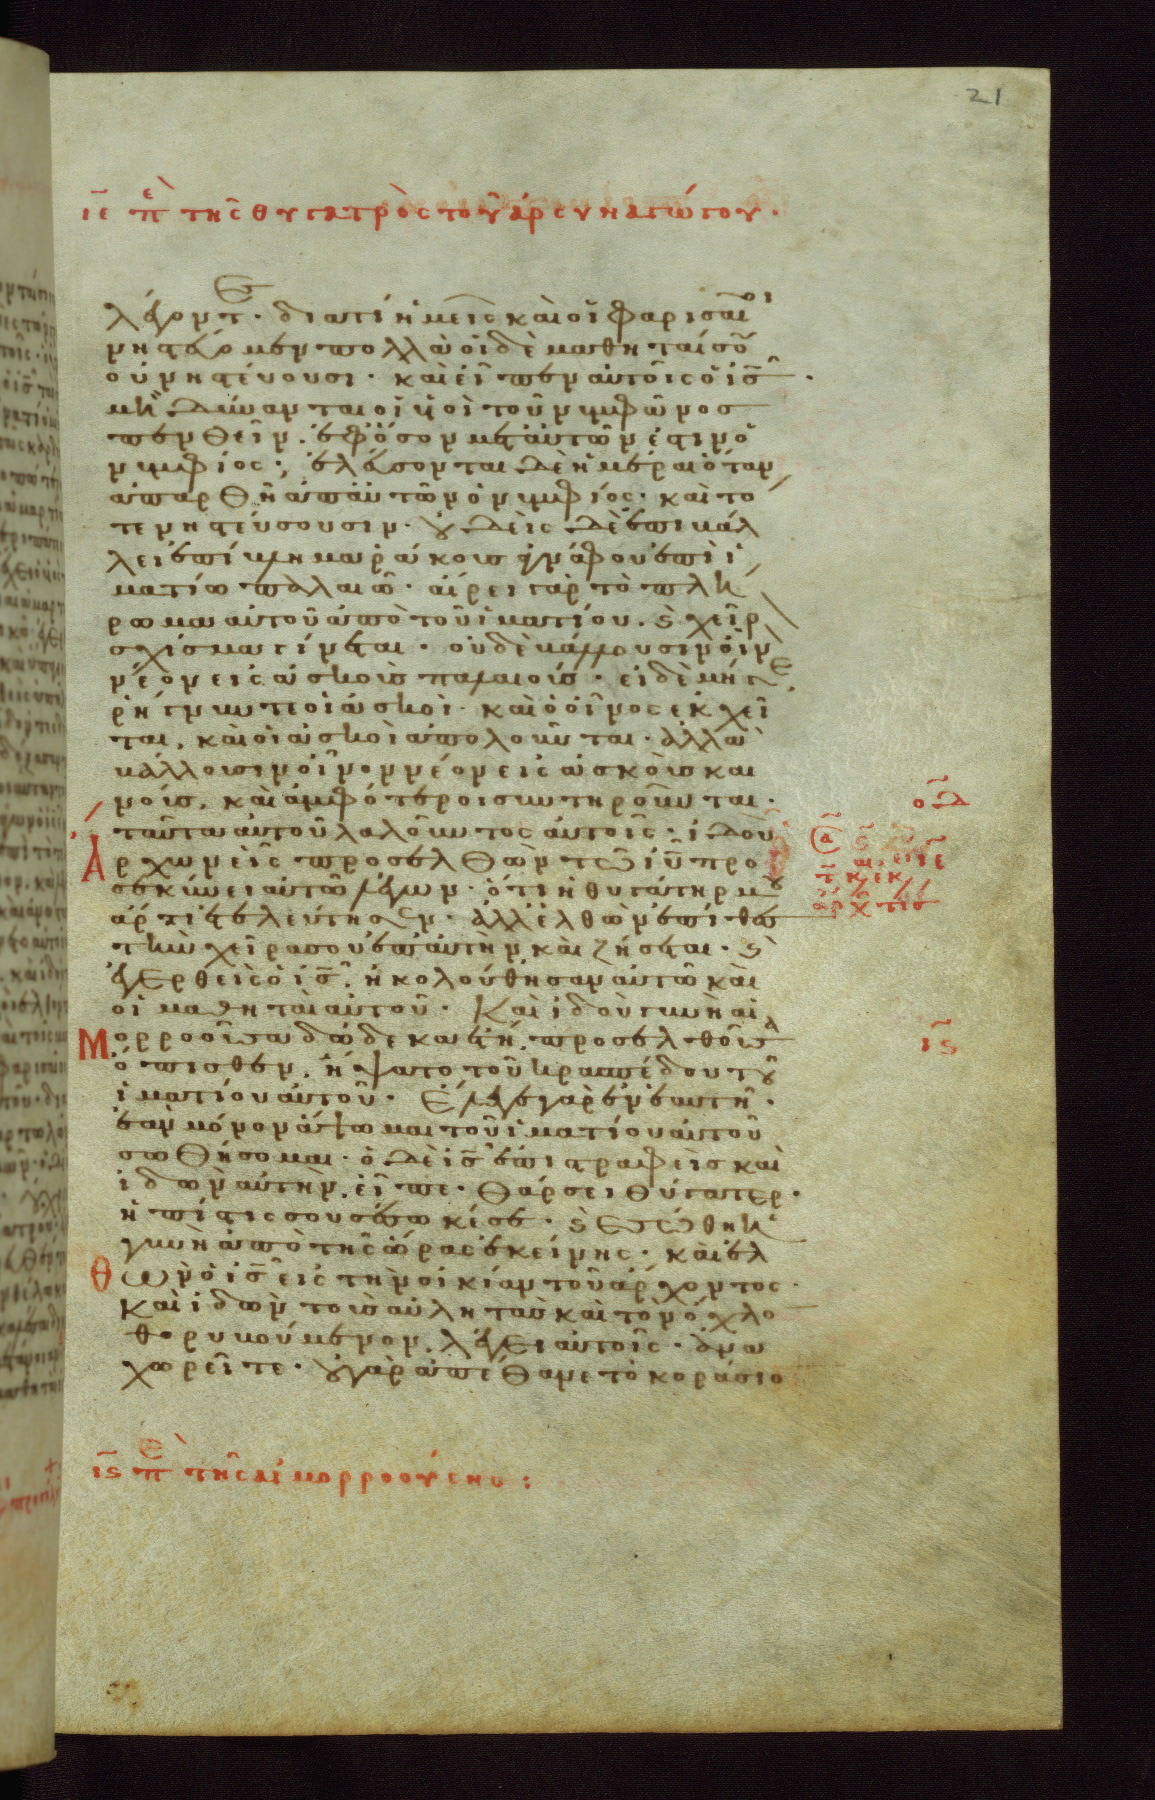 21
ιε πε τῆς θυγατρὸς τοῦ ἀρχϋναγώγου.
λέγοντες. διατί ἡμεῖς καὶ οἱ φαρισαῖοι
νηστεύομεν πολλὰ οἱ δὲ μαθηταί σου
οὐ νηστεύουσι. καὶ εἶπεν αὐτοῖς ὁ ις.
μὴ δύνανται οἱ υἱοὶ τοῦ νυμφῶνος
πενθεῖν. ἐφόσον μετ αὐτῶν ἐστιν ὁ
νυμφίος; ἐλεύσονται δὲ ἡμέραι ὅταν
ἀπαρθῆ ἀπ αὐτῶν ὁ νυμφίος. καὶ το
τε νηστεύσουσιν. οὐδεὶς δὲ ἐπιβάλ
λει ἐπίβλημα ῥάκους ἀγνάφου ἐπὶ ἱ
ματίω παλαιῶ. αἴρει γὰρ τὸ πλή
ρωμα αὐτοῦ ἀπὸ τοῦ ἱματίου. ϗ χεῖρον
σχίσμα γίνεται. οὐδὲ βάλλουσιν οἶνον
νέον εἰς ἀσκοὺς παλαιούς. εἰ δὲ μήγε
ῥήγνυνται οἱ ἀσκοὶ. καὶ ὁ οἶνος ἐκχεῖ
ται. καὶ οἱ ἀσκοὶ ἀπολοῦνται. ἀλλὰ
βάλλουσιν οἶνον νέον εἰς ἀσκοὺς και
νούς. καὶ ἀμφότεροι συντηροῦνται.
ταῦτα αὐτοῦ λαλοῦντος αὐτοῖς. ἰδοὺ
Αρχων εἷς προσελθὼν τῶ ιυ προ
σεκύνει αὐτῶ λέγων. ὅτι ἡ θυγάτηρ μου
ἄρτι ἐτελεύτησεν. ἀλλ ἐλθὼν ἐπίθες
τὴν χεῖρα σου ἐπ αὐτὴν καὶ ζήσεται. ϗ
ἐγερθεὶς ὁ ις. ἠκολούθησαν αὐτῶ καὶ
οἱ μαθηταὶ αὐτοῦ. Καὶ ἰδοὺ γυνὴ αἱ
Μορροοῦσα δώδεκα ἔτη, προσελθοῦσα
ὄπισθεν. ἥψατο τοῦ κρασπέδου τοῦ
ἱματίου αὐτοῦ. Ἔλεγε γὰρ ἐν ἑαυτῆ.
ἐὰν μόνον ἅψωμαι τοῦ ἱματίου αὐτοῦ
σωθήσομαι. ὁ δὲ ις ἐπιστραφεὶς καὶ
ἰδὼν αὐτὴν. εἶπε. θάρσει θύγατερ.
ἡ πίστις σου σέσωκέ σε. ϗ ἐσώθη ἡ
γυνὴ ἀπὸ τῆς ὥρας ἐκείνης. καὶ ἐλ
θὼν ὁ ις εἰς τὴν οἰκίαν τοῦ ἄρχοντος.
καὶ ἰδὼν τοὺς αὐλητὰς καὶ τὸν ὄχλον
θορυβούμενον. λέγει αὐτοῖς. ἀνα
χωρεῖτε. οὐ γὰρ ἀπέθανε τὸ κοράσιον
οδ
ιε
ις
ις πε τῆς αἱμορροούσης: